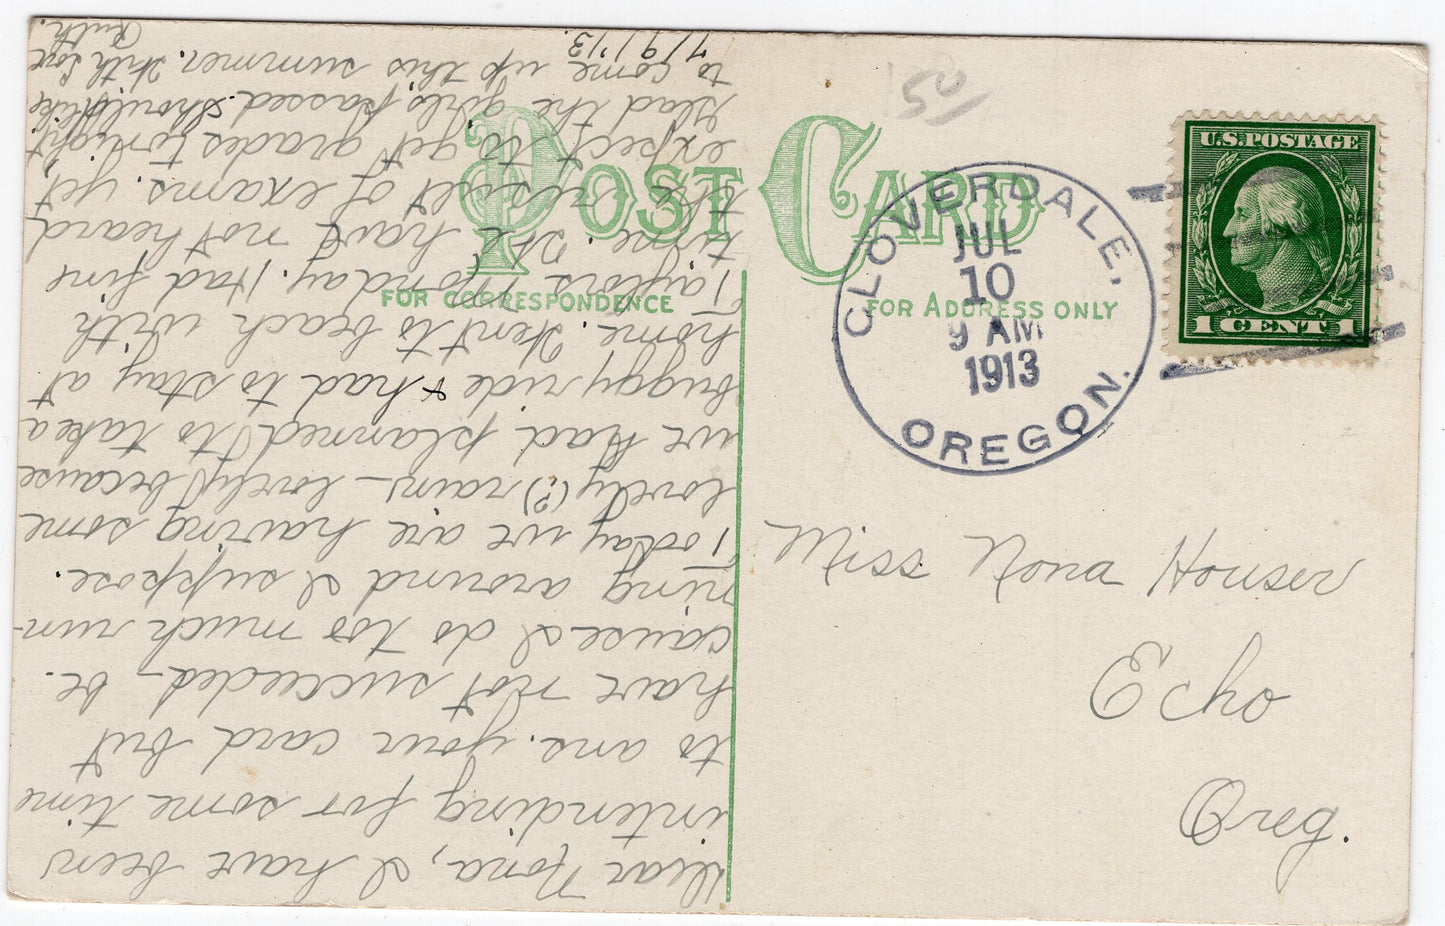 POST CARD
FOR CORRESPONDENCE
FOR ADDRESS ONLY
150
CLOVERDALE,
JUL
10
9 AM
1913
OREGON.
U.S. POSTAGE
1 CENT 1
Miss Nona Houser
Echo
Oreg.
Dear Nona, I have been
intending for some time
to ans. your card but
have not succeeded - be-
cause I do too much run-
ning around I suppose.
Today we are having some
lovely (?) rain - lovely because
we had planned to take a
buggy ride & had to stay at
home. Went to beach with
Taylors Monday. Had fine
time. We have not heard
the result of exams. yet,
expect to get grades tonight
glad the girls passed. Should like
to come up this summer. With love
Ruth.
7/9/'13